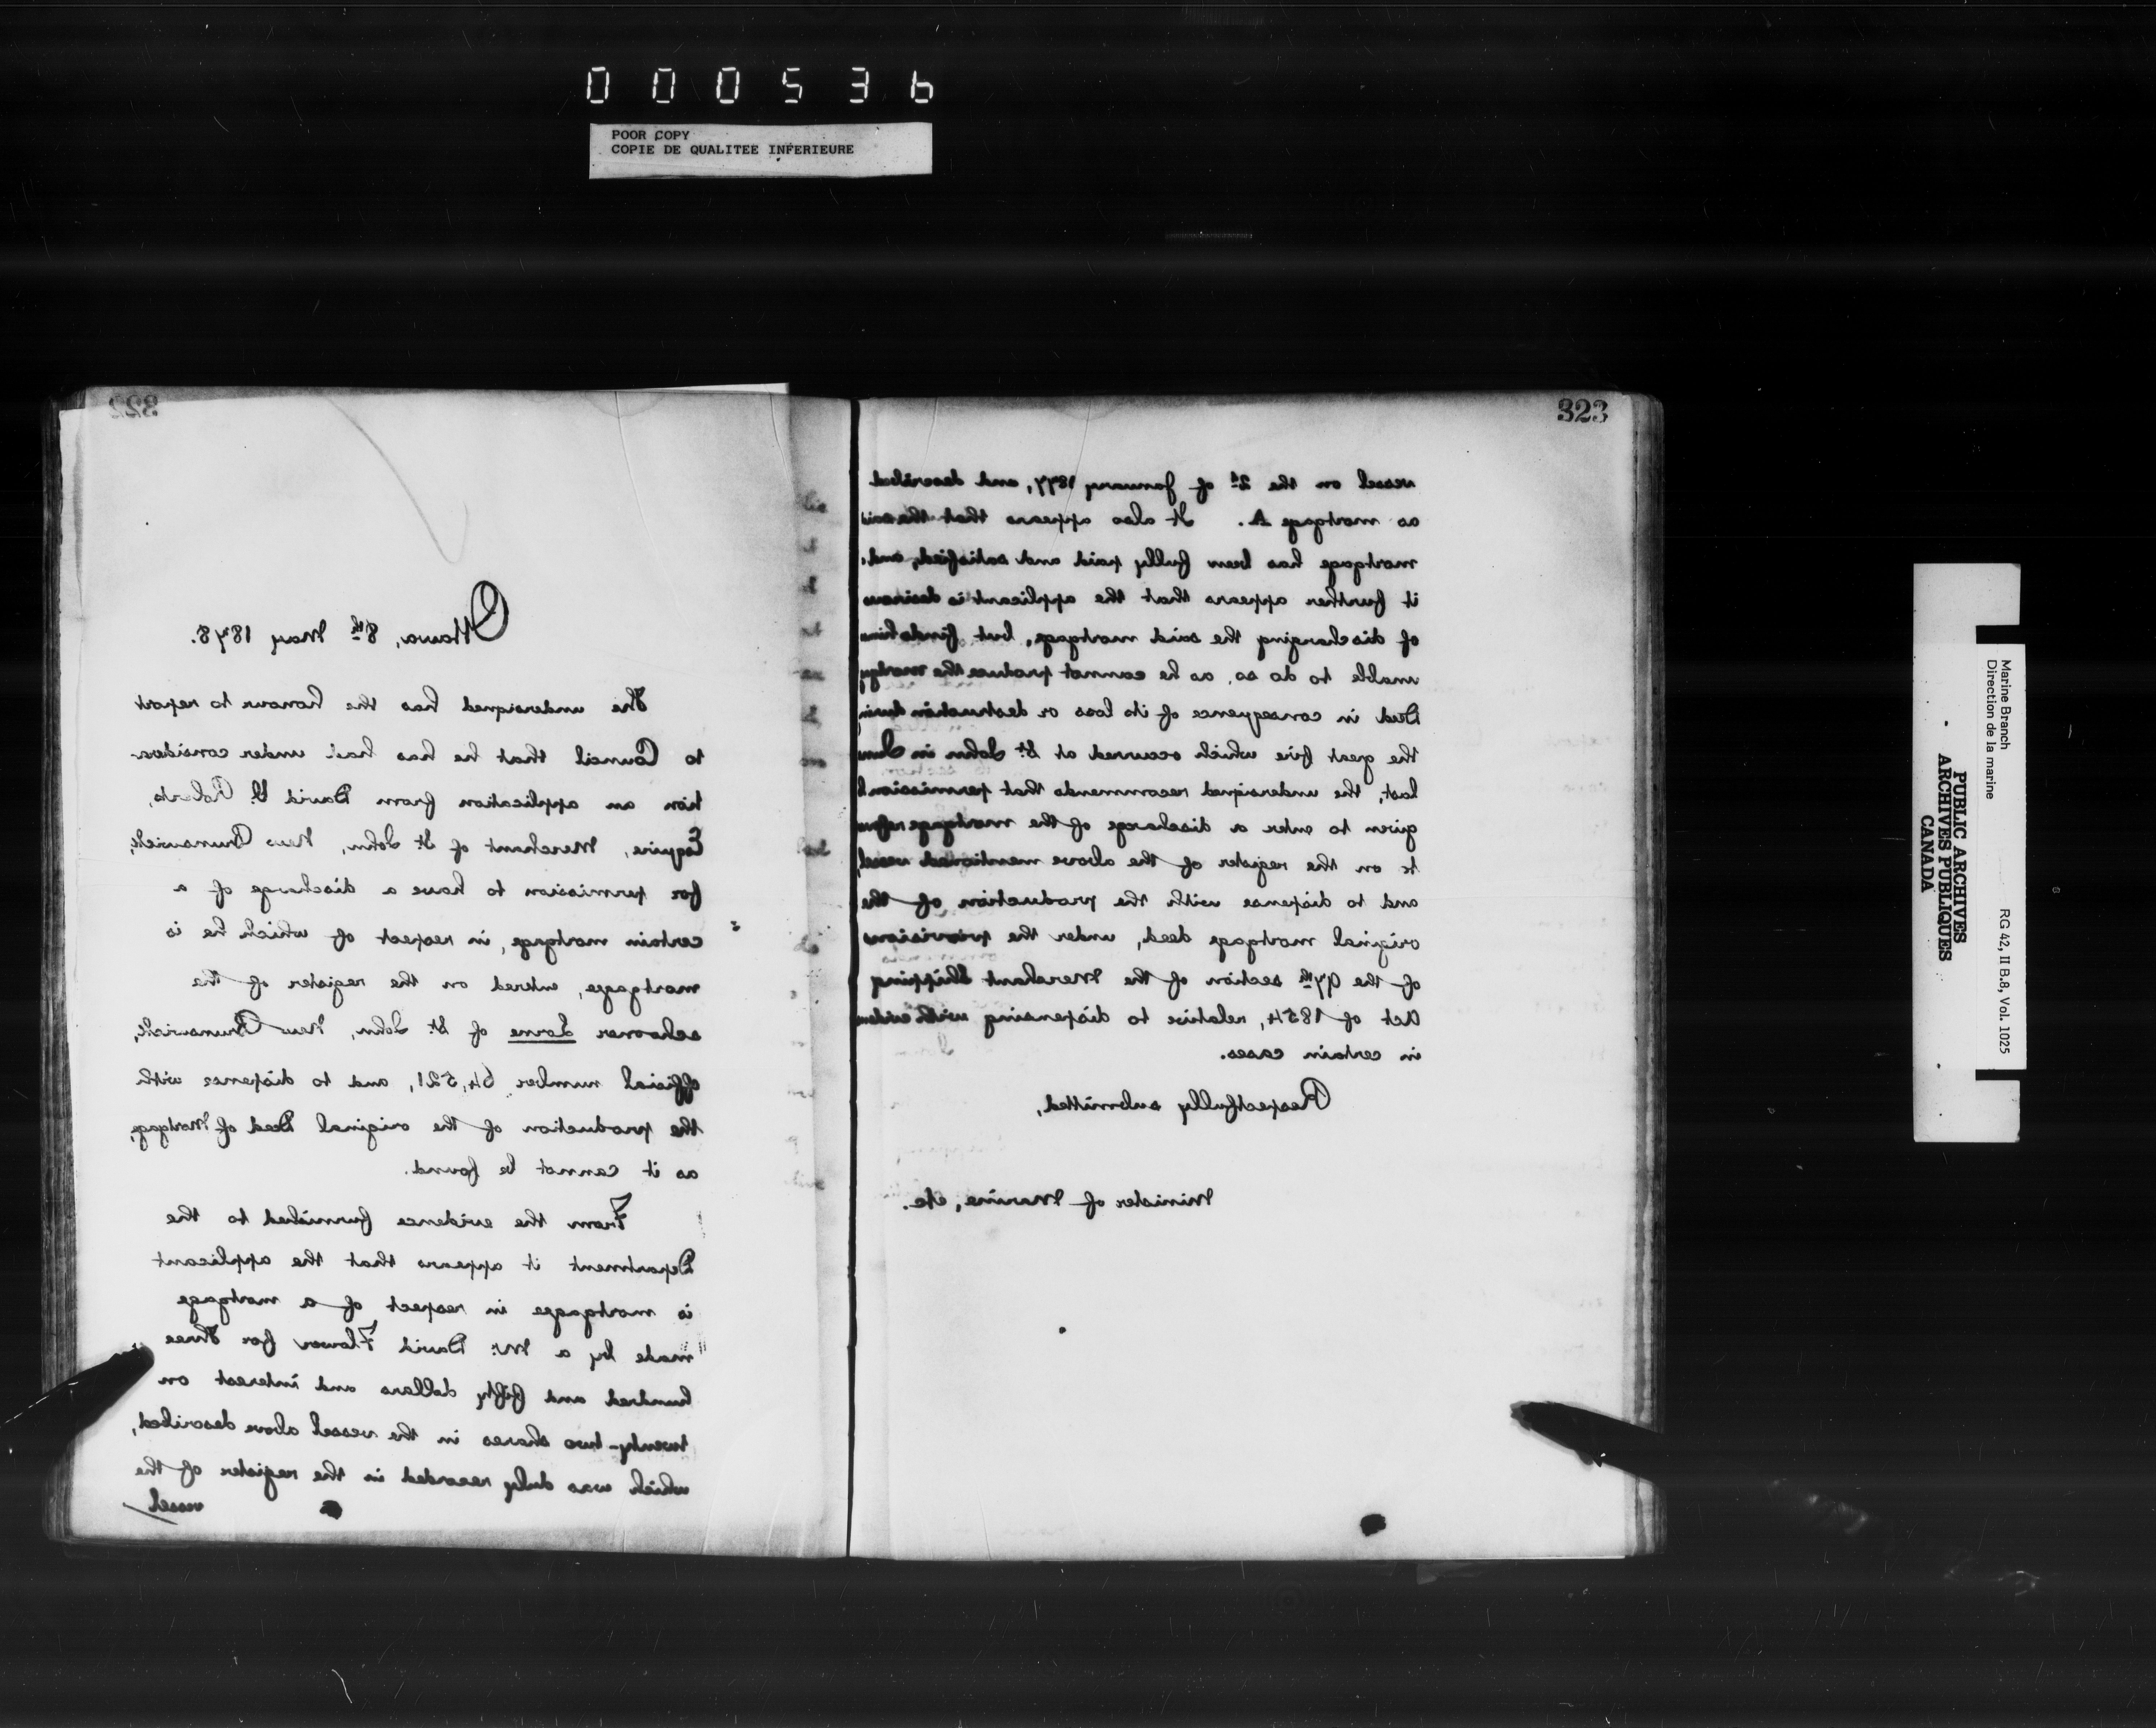 000536
POOR COPY
COPIE DE QUALITEE INFERIEURE
322
Ottawa, 8th May 1878.
The undersigned has the honour to report
to Council that he has had under considera-
tion an application from David V. Roberts,
Esquire, Merchant of St John, New Brunswick,
for permission to have a discharge of a
certain mortgage, in respect of which he is
mortgagee, entered on the register of the
schooner Lorne of St. John, New Brunswick,
official number 64,521, and to dispense with
the production of the original Deed of Mortgage,
as it cannot be found.
From the evidence furnished to the
Department it appears that the applicant
is mortgagee in respect of a mortgage
made by a Mr. David Flower for Three
hundred and fifty dollars and interest on
twenty-two shares in the vessel above described,
which was duly recorded in the register of the
vessel
323
vessel on the 2d of January 1877, and described
as mortgage A. It also appears that the said
mortgage has been fully paid and satisfied, and
it further appears that the applicant is desirous
of discharging the said mortgage, but finds him
unable to do so, as he cannot produce the mortg
Deed in consequence of its loss or destruction durin
the great fire which occurred at St John in June
last, the undersigned recommends that permission b
given to enter a discharge of the mortgage refer
to on the register of the above mentioned vessel
and to dispense with the production of the
original mortgage deed, under the provisions
of the 97th section of the Merchant Shipping
Act of 1854, relative to dispensing with eviden
in certain cases.
Respectfully submitted,
Minister of Marine, etc.
Marine Branch
Direction de la marine
RG 42, II B.8, Vol. 1025
PUBLIC ARCHIVES
ARCHIVES PUBLIQUES
CANADA